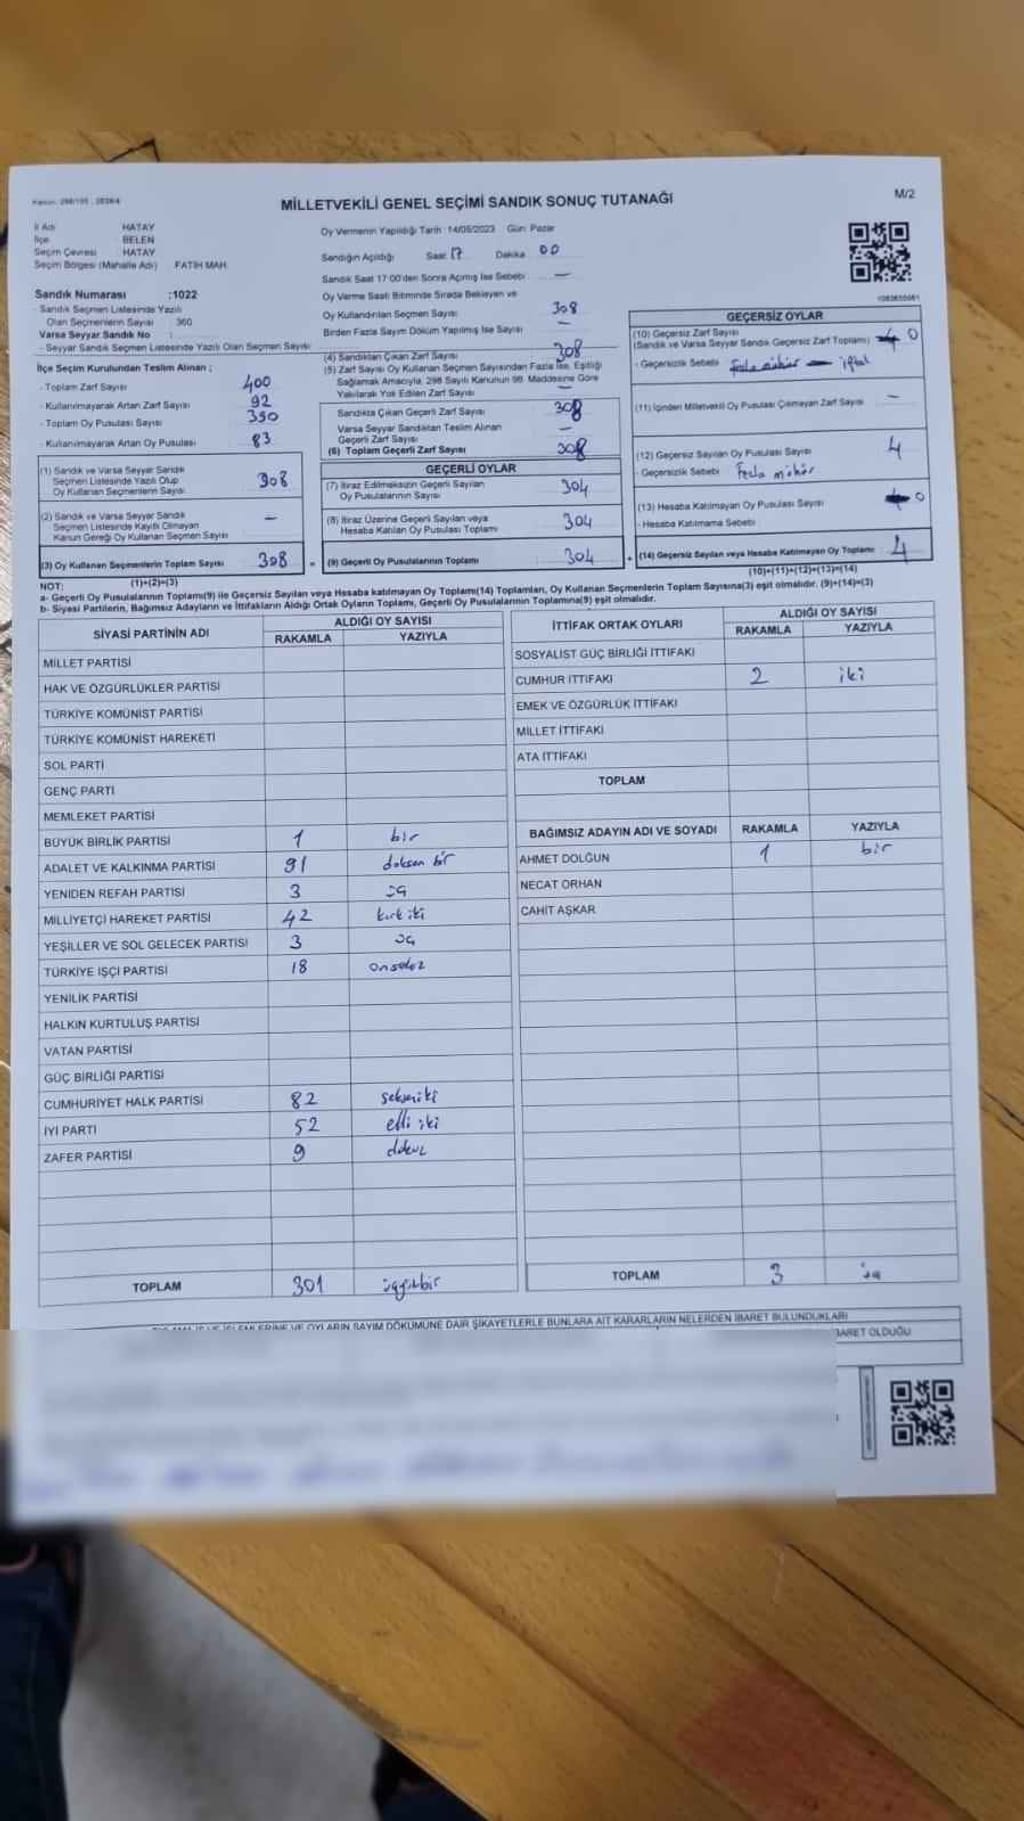 MİLLETVEKİLİ GENEL SEÇİMİ SANDIK SONUÇ TUTANAĞI
M/2
İl Adı HATAY
İlçe BELEN
Seçim Çevresi HATAY
Seçim Bölgesi (Mahalle Adı) FATİH MAH.
Sandık Numarası :1022
Sandık Seçmen Listesinde Yazılı
Olan Seçmenlerin Sayısı 360
Varsa Seyyar Sandık No :
- Seyyar Sandık Seçmen Listesinde Yazılı Olan Seçmen Sayısı
İlçe Seçim Kurulundan Teslim Alınan ;
- Toplam Zarf Sayısı 400
- Kullanılmayarak Artan Zarf Sayısı 92
- Toplam Oy Pusulası Sayısı 390
- Kullanılmayarak Artan Oy Pusulası 83
(1) Sandık ve Varsa Seyyar Sandık
Seçmen Listesinde Yazılı Olup
Oy Kullanan Seçmenlerin Sayısı 308
(2) Sandık ve Varsa Seyyar Sandık
Seçmen Listesinde Kayıtlı Olmayan
Kanun Gereği Oy Kullanan Seçmen Sayısı -
(3) Oy Kullanan Seçmenlerin Toplam Sayısı 308
(1)+(2)=(3)
Oy Vermenin Yapıldığı Tarih : 14/05/2023 Gün: Pazar
Sandığın Açıldığı Saat 17 Dakika 00
Sandık Saat 17:00'den Sonra Açılmış İse Sebebi -
Oy Verme Saati Bitiminde Sırada Bekleyen ve
Oy Kullandırılan Seçmen Sayısı 308
Birden Fazla Sayım Döküm Yapılmış İse Sayısı -
(4) Sandıktan Çıkan Zarf Sayısı 308
(5) Zarf Sayısı Oy Kullanan Seçmen Sayısından Fazla İse, Eşitliği
Sağlamak Amacıyla, 298 Sayılı Kanunun 98. Maddesine Göre
Yakılarak Yok Edilen Zarf Sayısı -
Sandıkta Çıkan Geçerli Zarf Sayısı 308
Varsa Seyyar Sandıktan Teslim Alınan
Geçerli Zarf Sayısı -
(6) Toplam Geçerli Zarf Sayısı 308
GEÇERLİ OYLAR
(7) İtiraz Edilmeksizin Geçerli Sayılan
Oy Pusulalarının Sayısı 304
(8) İtiraz Üzerine Geçerli Sayılan veya
Hesaba Katılan Oy Pusulası Toplamı 304
= (9) Geçerli Oy Pusulalarının Toplamı 304
GEÇERSİZ OYLAR
(10) Geçersiz Zarf Sayısı
(Sandık ve Varsa Seyyar Sandık Geçersiz Zarf Toplamı) 0
- Geçersizlik Sebebi iptal
(11) İçinden Milletvekili Oy Pusulası Çıkmayan Zarf Sayısı -
(12) Geçersiz Sayılan Oy Pusulası Sayısı 4
- Geçersizlik Sebebi Fazla mühür
(13) Hesaba Katılmayan Oy Pusulası Sayısı 0
- Hesaba Katılmama Sebebi
+ (14) Geçersiz Sayılan veya Hesaba Katılmayan Oy Toplamı 4
(10)+(11)+(12)+(13)=(14)
NOT:
a- Geçerli Oy Pusulalarının Toplamı(9) ile Geçersiz Sayılan veya Hesaba katılmayan Oy Toplamı(14) Toplamları, Oy Kullanan Seçmenlerin Toplam Sayısına(3) eşit olmalıdır. (9)+(14)=(3)
b- Siyasi Partilerin, Bağımsız Adayların ve İttifakların Aldığı Ortak Oyların Toplamı, Geçerli Oy Pusulalarının Toplamına(9) eşit olmalıdır.
SİYASİ PARTİNİN ADI ALDIĞI OY SAYISI
RAKAMLA YAZIYLA
MİLLET PARTİSİ
HAK VE ÖZGÜRLÜKLER PARTİSİ
TÜRKİYE KOMÜNİST PARTİSİ
TÜRKİYE KOMÜNİST HAREKETİ
SOL PARTİ
GENÇ PARTİ
MEMLEKET PARTİSİ
BÜYÜK BİRLİK PARTİSİ 1 bir
ADALET VE KALKINMA PARTİSİ 91 doksan bir
YENİDEN REFAH PARTİSİ 3 üç
MİLLİYETÇİ HAREKET PARTİSİ 42 kırk iki
YEŞİLLER VE SOL GELECEK PARTİSİ 3 üç
TÜRKİYE İŞÇİ PARTİSİ 18 onsekiz
YENİLİK PARTİSİ
HALKIN KURTULUŞ PARTİSİ
VATAN PARTİSİ
GÜÇ BİRLİĞİ PARTİSİ
CUMHURİYET HALK PARTİSİ 82 seksen iki
İYİ PARTİ 52 elli iki
ZAFER PARTİSİ 9 dokuz
TOPLAM 301 üçyüzbir
İTTİFAK ORTAK OYLARI ALDIĞI OY SAYISI
RAKAMLA YAZIYLA
SOSYALİST GÜÇ BİRLİĞİ İTTİFAKI
CUMHUR İTTİFAKI 2 iki
EMEK VE ÖZGÜRLÜK İTTİFAKI
MİLLET İTTİFAKI
ATA İTTİFAKI
TOPLAM
BAĞIMSIZ ADAYIN ADI VE SOYADI RAKAMLA YAZIYLA
AHMET DOLĞUN 1 bir
NECAT ORHAN
CAHİT AŞKAR
TOPLAM 3 üç
İŞLEMLERİNE VE OYLARIN SAYIM DÖKÜMÜNE DAİR ŞİKAYETLERLE BUNLARA AİT KARARLARIN NELERDEN İBARET BULUNDUKLARI
İBARET OLDUĞU